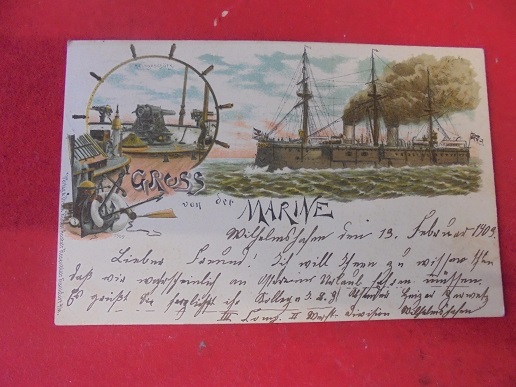 GRUSS
von der
MARINE
Wilhelmshafen den 13. Februar 1903.
Lieber Freund! Ich will Ihnen zu wissen thun
daß wir wahrscheinlich an Ostern Urlaub fahren müssen.
Es grüßt Sie herzlichst ihr Kollege z. Z. Heizer
III. Comp. II Werft-Division Wilhelmshafen